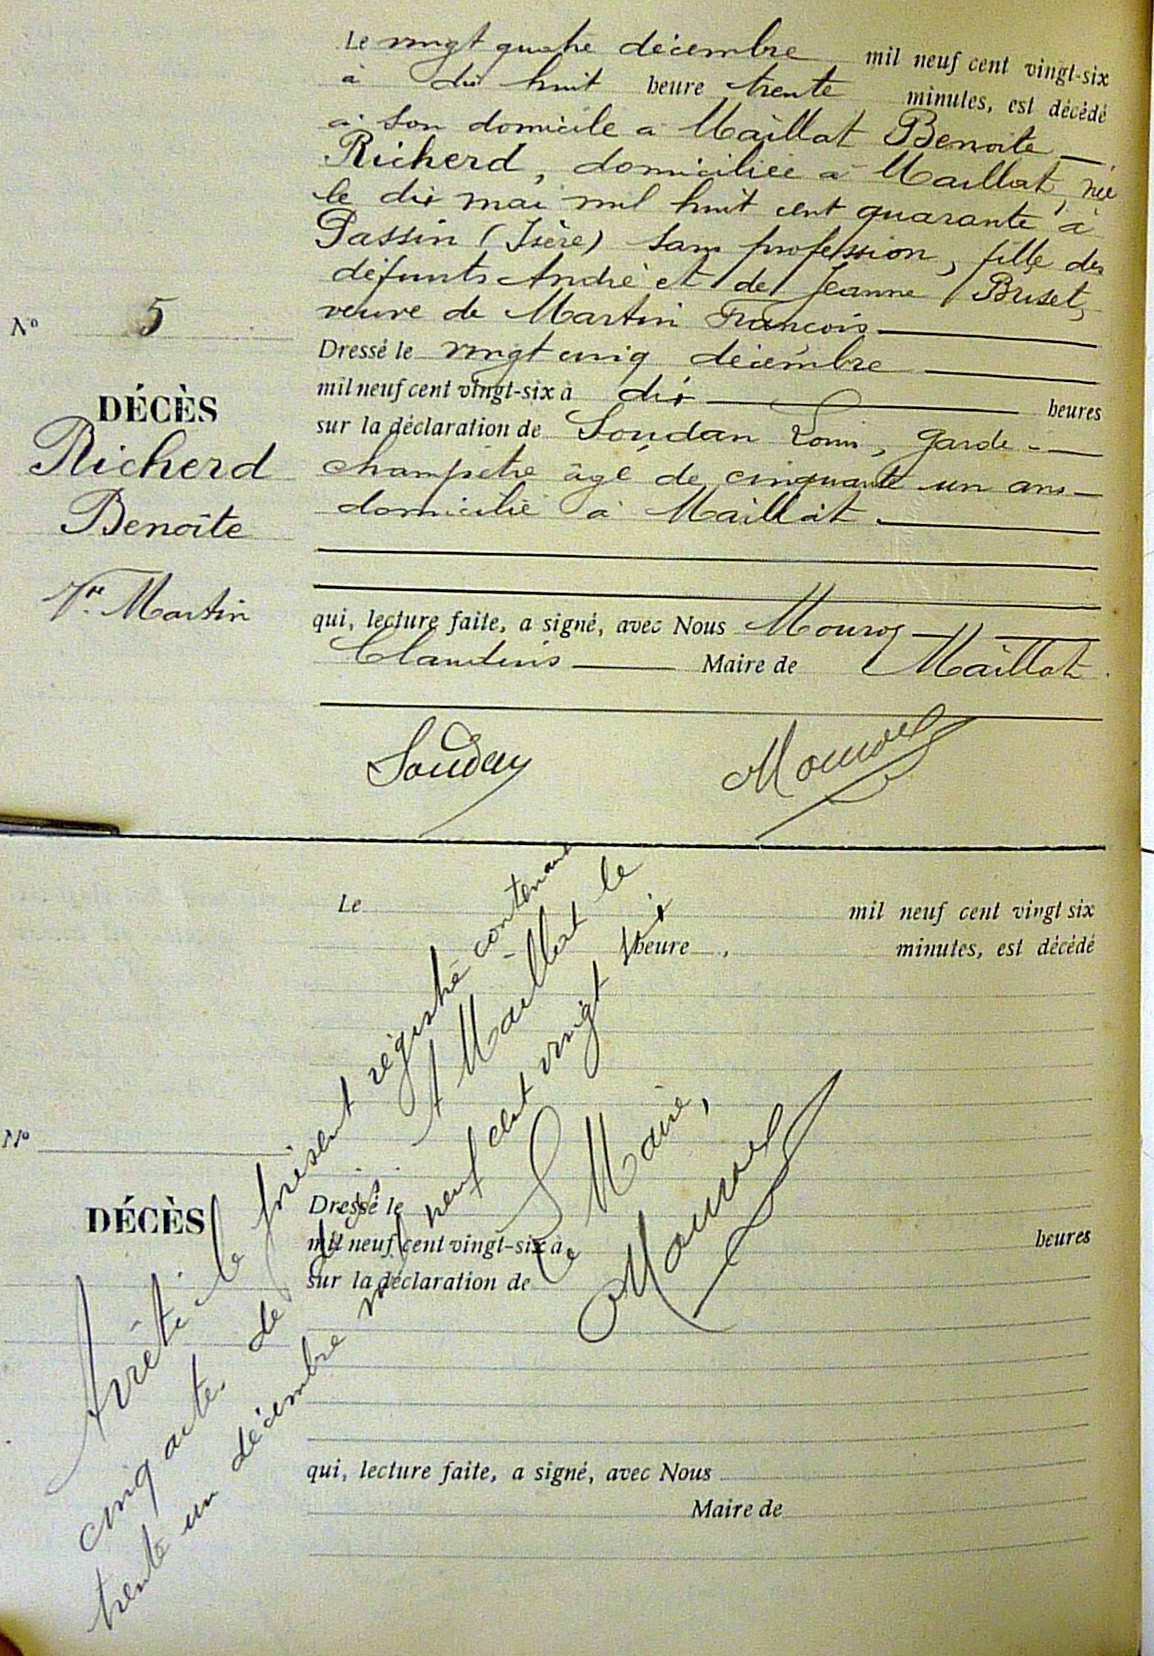 Le vingt quatre décembre mil neuf cent vingt-six
à dix huit heure trente minutes, est décédé
à son domicile à Maillat Benoite
Richerd, domiciliée à Maillat, née
le dix mai mil huit cent quarante à
Passin (Isère) sans profession, fille des
défunts André et de Jeanne Buset,
veuve de Martin François
Nº 5
Dressé le vingt cinq décembre
mil neuf cent vingt-six à dix heures
DÉCÈS
sur la déclaration de Soudan Louis, garde-
Richerd
champêtre âgé de cinquante un ans
Benoîte
domicilié à Maillat.
Vve Martin
qui, lecture faite, a signé, avec Nous
Claudius Maire de Maillat.
Soudan
Le mil neuf cent vingt six
heure minutes, est décédé
Nº
DÉCÈS
Dressé le
mil neuf cent vingt-six à heures
sur la déclaration de
Arrêté le présent régistre contenant
cinq actes de décès. A Maillat le
trente un décembre mil neuf cent vingt six
Le Maire,
qui, lecture faite, a signé, avec Nous
Maire de